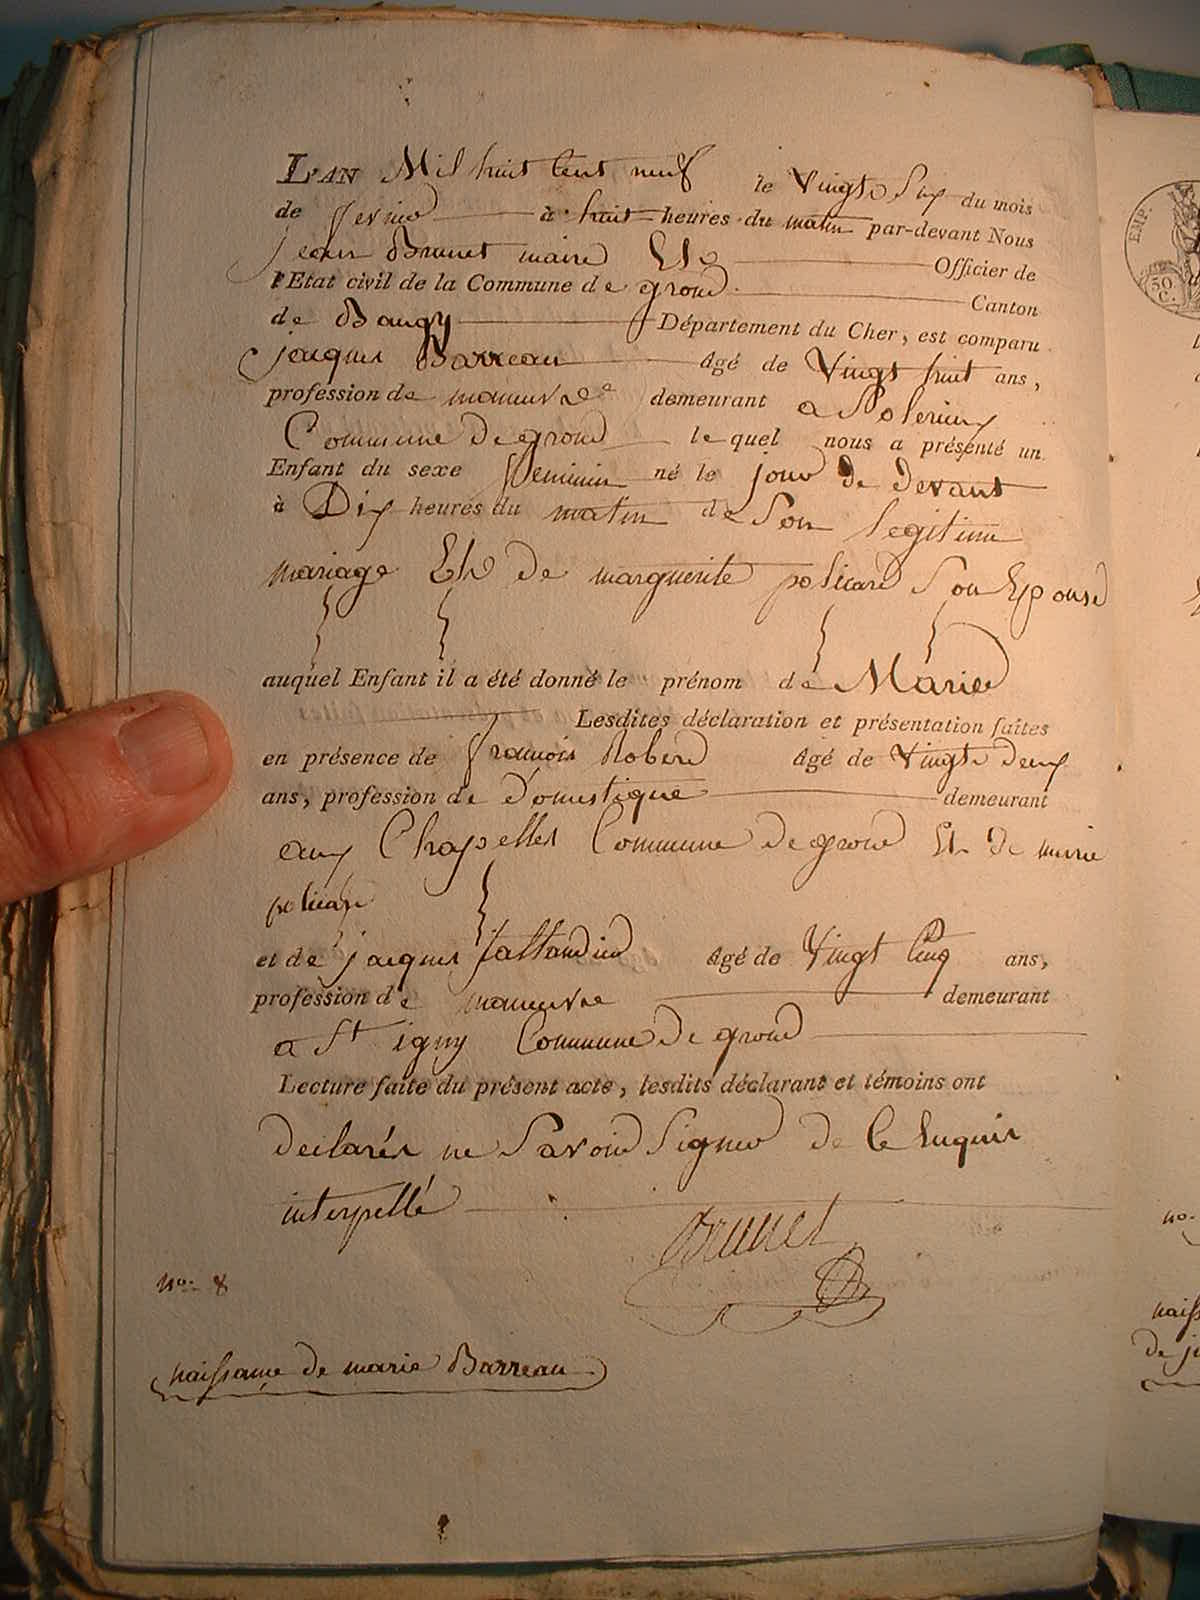 L'AN Mil huit Cent neuf le Vingte Six du mois
de fevrier à huit heures du matin par-devant Nous
jean Brunet maire Et Officier de
l'Etat civil de la Commune de groud Canton
de Baugy Département du Cher, est comparu
jacques Barreau Agé de Vingt huit ans,
profession de maneuvre demeurant a
Commune De groud lequel nous a présenté un
Enfant du sexe feminin né le jour de devant
à Dix heures du matin de Son legitime
mariage Et de marguerite policard Son Epouse
auquel Enfant il a été donné le prénom de Marie
Lesdites déclaration et présentation faites
en présence de francois Roberd Agé de Vingte deux
ans, profession de Domestique demeurant
aux Chapelles Commune De groud Et De
et de jacques tallandier Agé de Vingt Cinq ans,
profession de maneuvre demeurant
a St igny Commune De groud
Lecture faite du présent acte, lesdits déclarant et témoins ont
declarés ne Savoir Signer de Ce Enquis
interpellé
Brunet
no. 8
naissance de marie Barreau
EMP.
50
C.
no.
naiss
de j